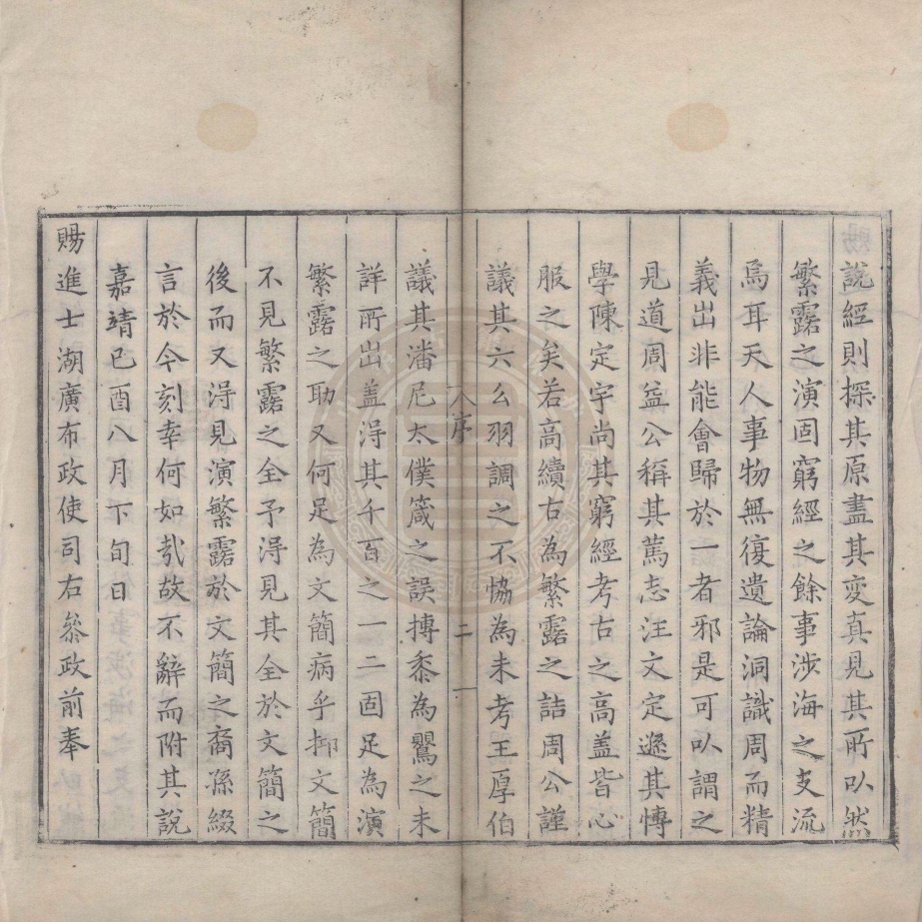 說經則探其原盡其变真見其所以然
繁露之演固窮經之餘事涉海之支流
焉耳天人事物無復遺論洞識周而精
義出非能會歸於一者邪是可以謂之
見道周益公稱其篤志汪文定遜其博
學陳定宇尚其窮經考古之高盖皆心
服之矣若高續古為繁露之詰周公謹
議其六么羽調之不恊為未考王厚伯
議其潘尼太僕箴之誤摶黍為鸎之未
詳所出盖淂其千百之一二固足為演
繁露之助又何足為文簡病乎抑文簡
不見繁露之全予淂見其全於文簡之
後而又淂見演繁露於文簡之裔孫綴
言於今刻幸何如㢤故不辭而附其說
嘉靖己酉八月下旬日
賜進士湖廣布政使司右叅政前奉
序
二